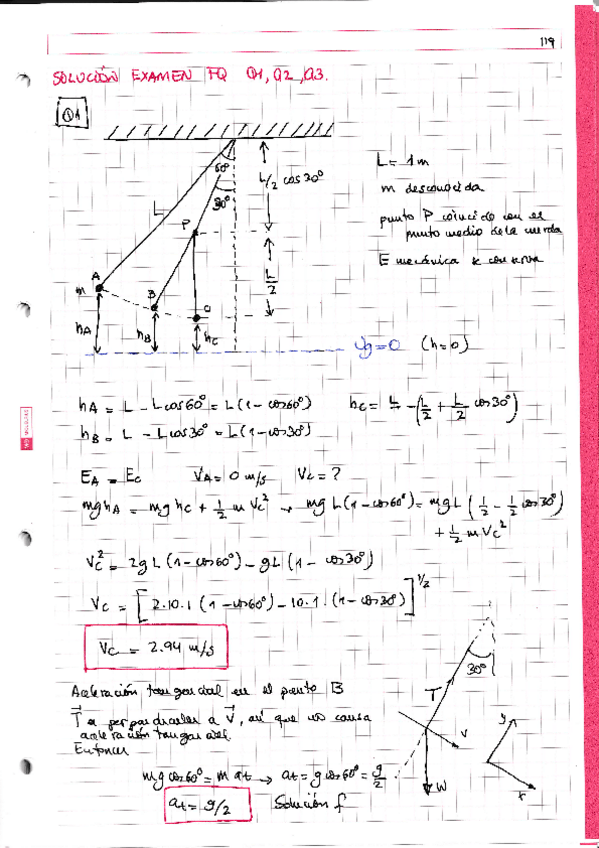 119
SOLUCIÓN EXAMEN FQ Q1, Q2, Q3.
Q1
60°
30°
L
L/2 cos30°
P
A
m
B
C
L/2
hA
hB
hC
L = 1m
m desconocida
punto P coincide con el
punto medio de la cuerda
E mecánica se conserva
Ug=0 (h=0)
hA = L - Lcos60° = L(1-cos60°) hC = L - (L/2 + L/2 cos30°)
hB = L - Lcos30° = L(1-cos30°)
EA = EC VA = 0 m/s VC = ?
mghA = mghC + 1/2 m VC² → mgL(1-cos60°) = mgL(1/2 - 1/2 cos30°)
+ 1/2 m VC²
VC² = 2gL(1-cos60°) - gL(1-cos30°)
VC = [2·10·1(1-cos60°) - 10·1·(1-cos30°)]^1/2
VC = 2.94 m/s
Aceleración tangencial en el punto B
T es perpendicular a v, así que no causa
aceleración tangencial.
Entonces
mg cos60° = m at → at = g cos60° = g/2
at = g/2 Solución f
30°
T
v
W
y
x